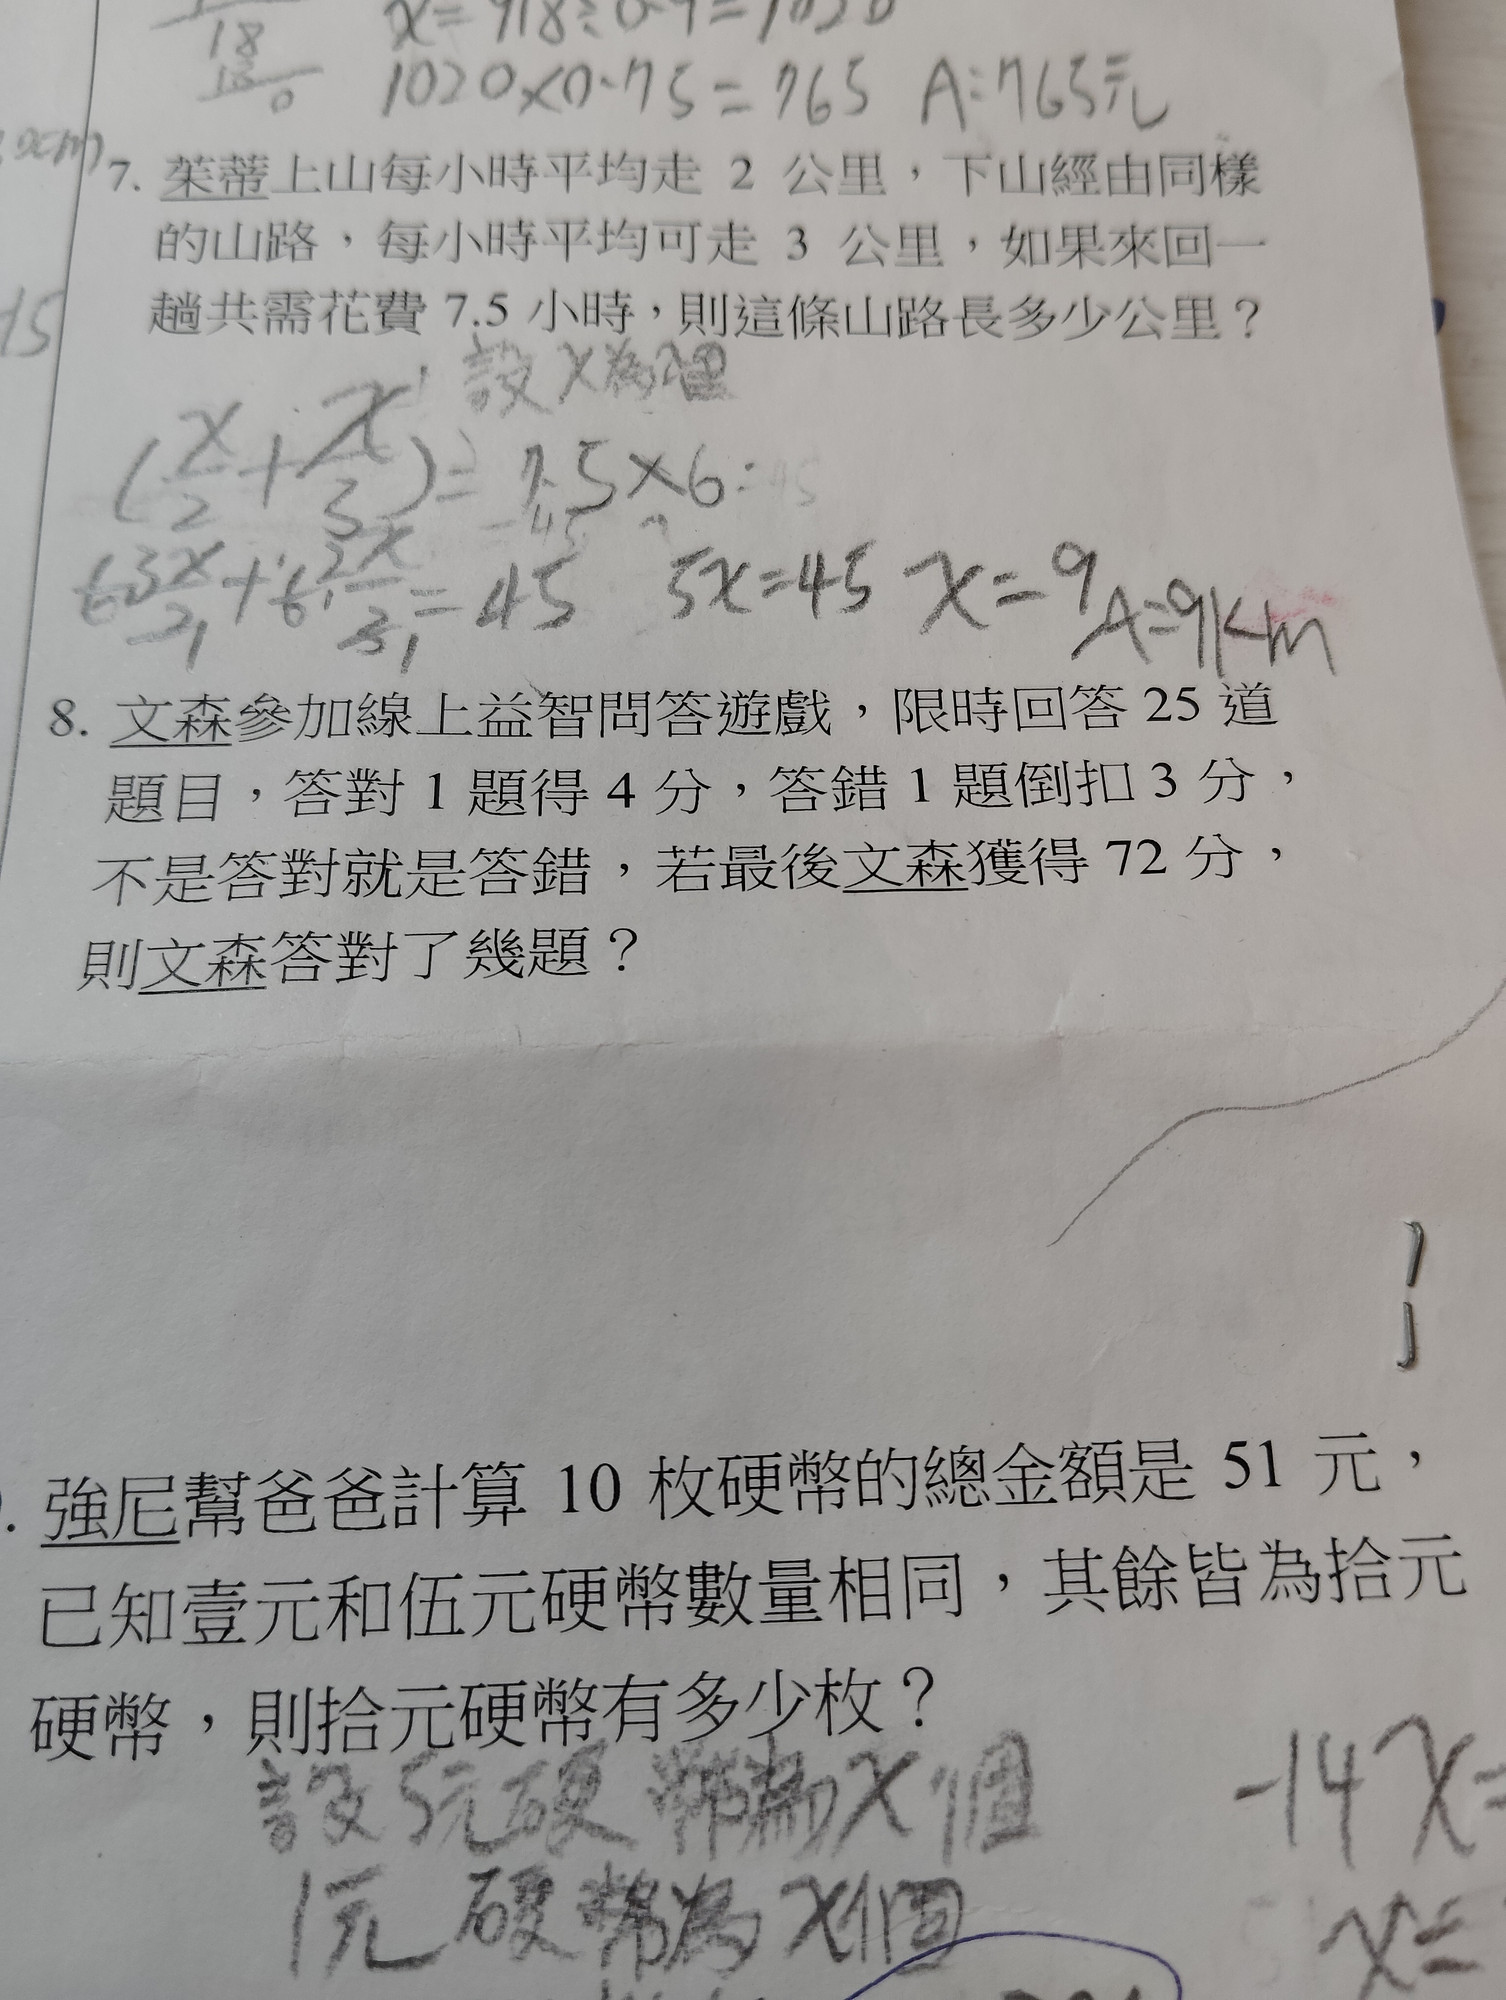 18
0
x=918÷0.9=1020
1020×0.75=765 A:765元
7. 茱蒂上山每小時平均走 2 公里，下山經由同樣
的山路，每小時平均可走 3 公里，如果來回一
趟共需花費 7.5 小時，則這條山路長多少公里？
15
設X為公里
(x/2+x/3)=7.5×6=45
=45
6 3x/2 1+6 2x/3 1=45 5x=45 x=9 A=9km
8. 文森參加線上益智問答遊戲，限時回答 25 道
題目，答對 1 題得 4 分，答錯 1 題倒扣 3 分，
不是答對就是答錯，若最後文森獲得 72 分，
則文森答對了幾題？
. 強尼幫爸爸計算 10 枚硬幣的總金額是 51 元，
已知壹元和伍元硬幣數量相同，其餘皆為拾元
硬幣，則拾元硬幣有多少枚？
設5元硬幣為X個 -14X=
1元硬幣為X個 x=